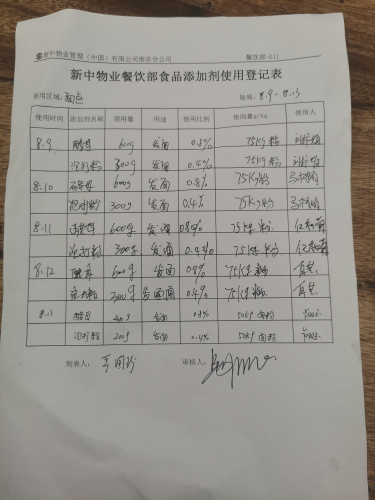 新中物业管理（中国）有限公司南京分公司 餐饮部-011
新中物业餐饮部食品添加剂使用登记表
使用区域：面点 每周：8.9-8.13
使用时间 添加剂名称 领用量 用途 使用比例 使用量g/kg 使用人
8.9 酵母 600g 发面 0.8% 75Kg粉
泡打粉 300g 发面 0.4% 75Kg粉
8.10 酵母 600g 发面 0.8% 75Kg粉
泡打粉 300g 发面 0.4% 75Kg粉
8.11 酵母 600g 发面 0.80% 75Kg粉
泡打粉 300g 发面 0.4% 75Kg粉
8.12 酵母 600g 发面 0.8% 75Kg粉
300g 发面 0.4% 75Kg粉
8.13 酵母 400g 发面 0.8% 50Kg面粉
泡打粉 200g 发面 0.4% 50Kg面粉
制表人： 审核人：